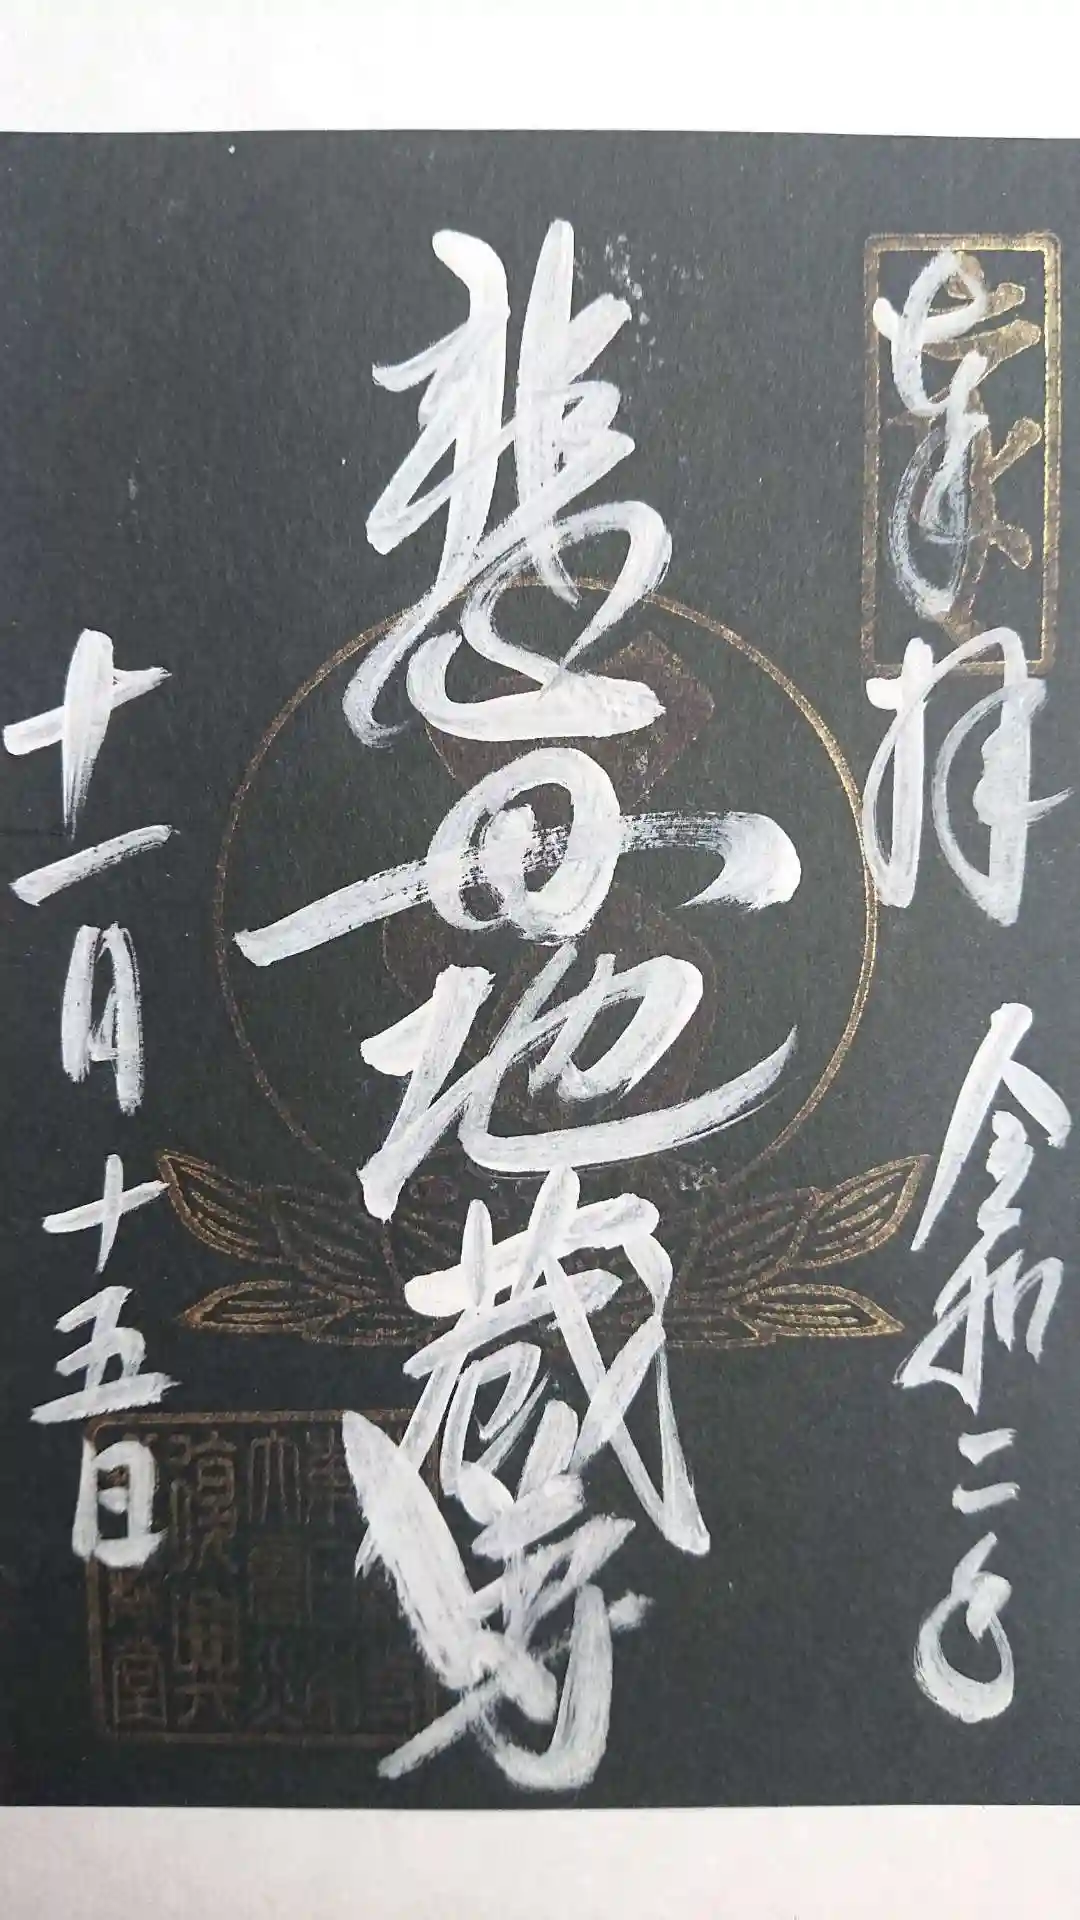 奉拝 令和二年
悲母地蔵尊
十一月十五日